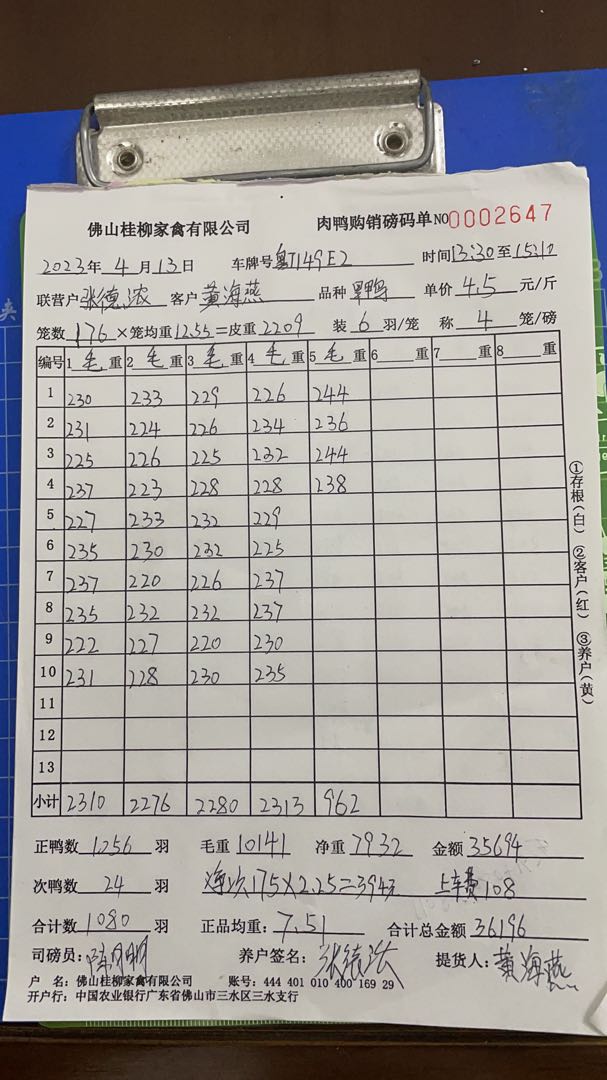 佛山桂柳家禽有限公司 肉鸭购销磅码单 NO 0002647
2023年 4 月 13 日 车牌号 粤J149E2 时间 13:30 至 15:10
联营户 张德浓 客户 黄海燕 品种 鸭 单价 4.5 元/斤
笼数 176 ×笼均重 12.55 =皮重 2209 装 6 羽/笼 称 4 笼/磅
编号 1 毛 重 2 毛 重 3 毛 重 4 毛 重 5 毛 重 6 重 7 重 8 重
1 230 233 229 226 244
2 231 224 226 234 236
3 225 226 225 232 244
4 237 223 228 228 238
5 227 233 232 229
6 235 230 232 225
7 237 220 226 237
8 235 232 232 237
9 222 227 220 230
10 231 228 230 235
11
12
13
小计 2310 2276 2280 2313 962
①存根(白) ②客户(红) ③养户(黄)
正鸭数 1256 羽 毛重 10141 净重 7932 金额 35694
次鸭数 24 羽 次 175×2.25=3943 上车费 108
合计数 1080 羽 正品均重: 7.51 合计总金额 36196
司磅员: 养户签名: 张德浓 提货人: 黄海燕
户 名: 佛山桂柳家禽有限公司 账号: 444 401 010 400 169 29
开户行: 中国农业银行广东省佛山市三水区三水支行